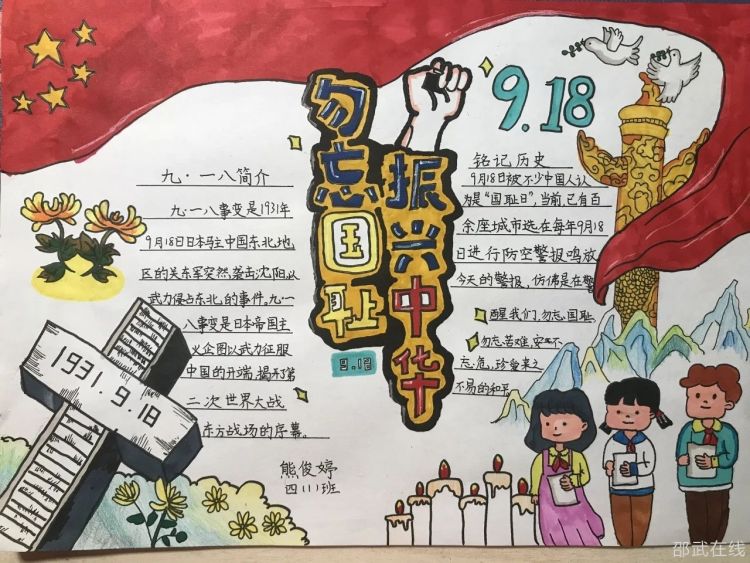 勿忘国耻
振兴中华
9.18
9.18
九·一八简介
九·一八事变是1931年
9月18日日本驻中国东北地
区的关东军突然袭击沈阳,以
武力侵占东北的事件。九一
八事变是日本帝国主
义企图以武力征服
中国的开端,揭开了第
二次世界大战
东方战场的序幕。
熊俊婷
四(1)班
铭记历史
9月18日被不少中国人认
为是"国耻日",当前,已有百
余座城市选在每年9月18
日进行防空警报鸣放
今天的警报,仿佛是在警
醒我们,勿忘国耻
勿忘苦难,安不
忘危,珍爱来之
不易的和平
1931.9.18
邵武在线